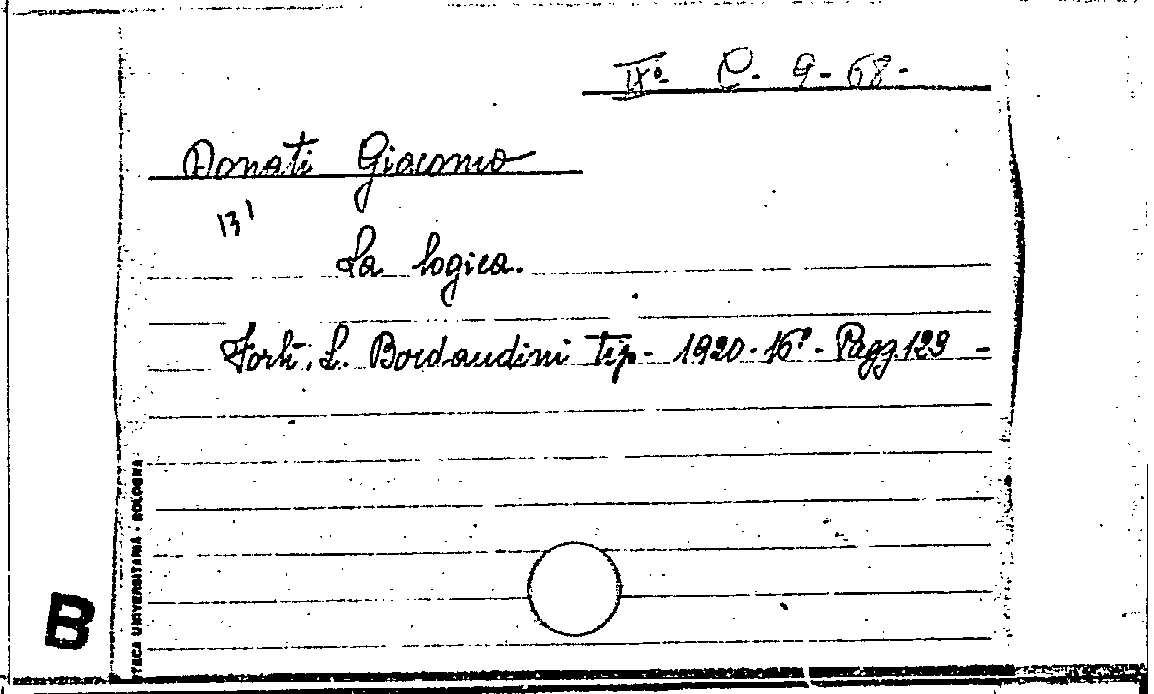 IXº C. 9-68-
Donati Giacomo
131
La logica.
Forlì, L. Bordandini tip- 1920-16º- Pagg.129 -
TECA UNIVERSITARIA - BOLOGNA
B